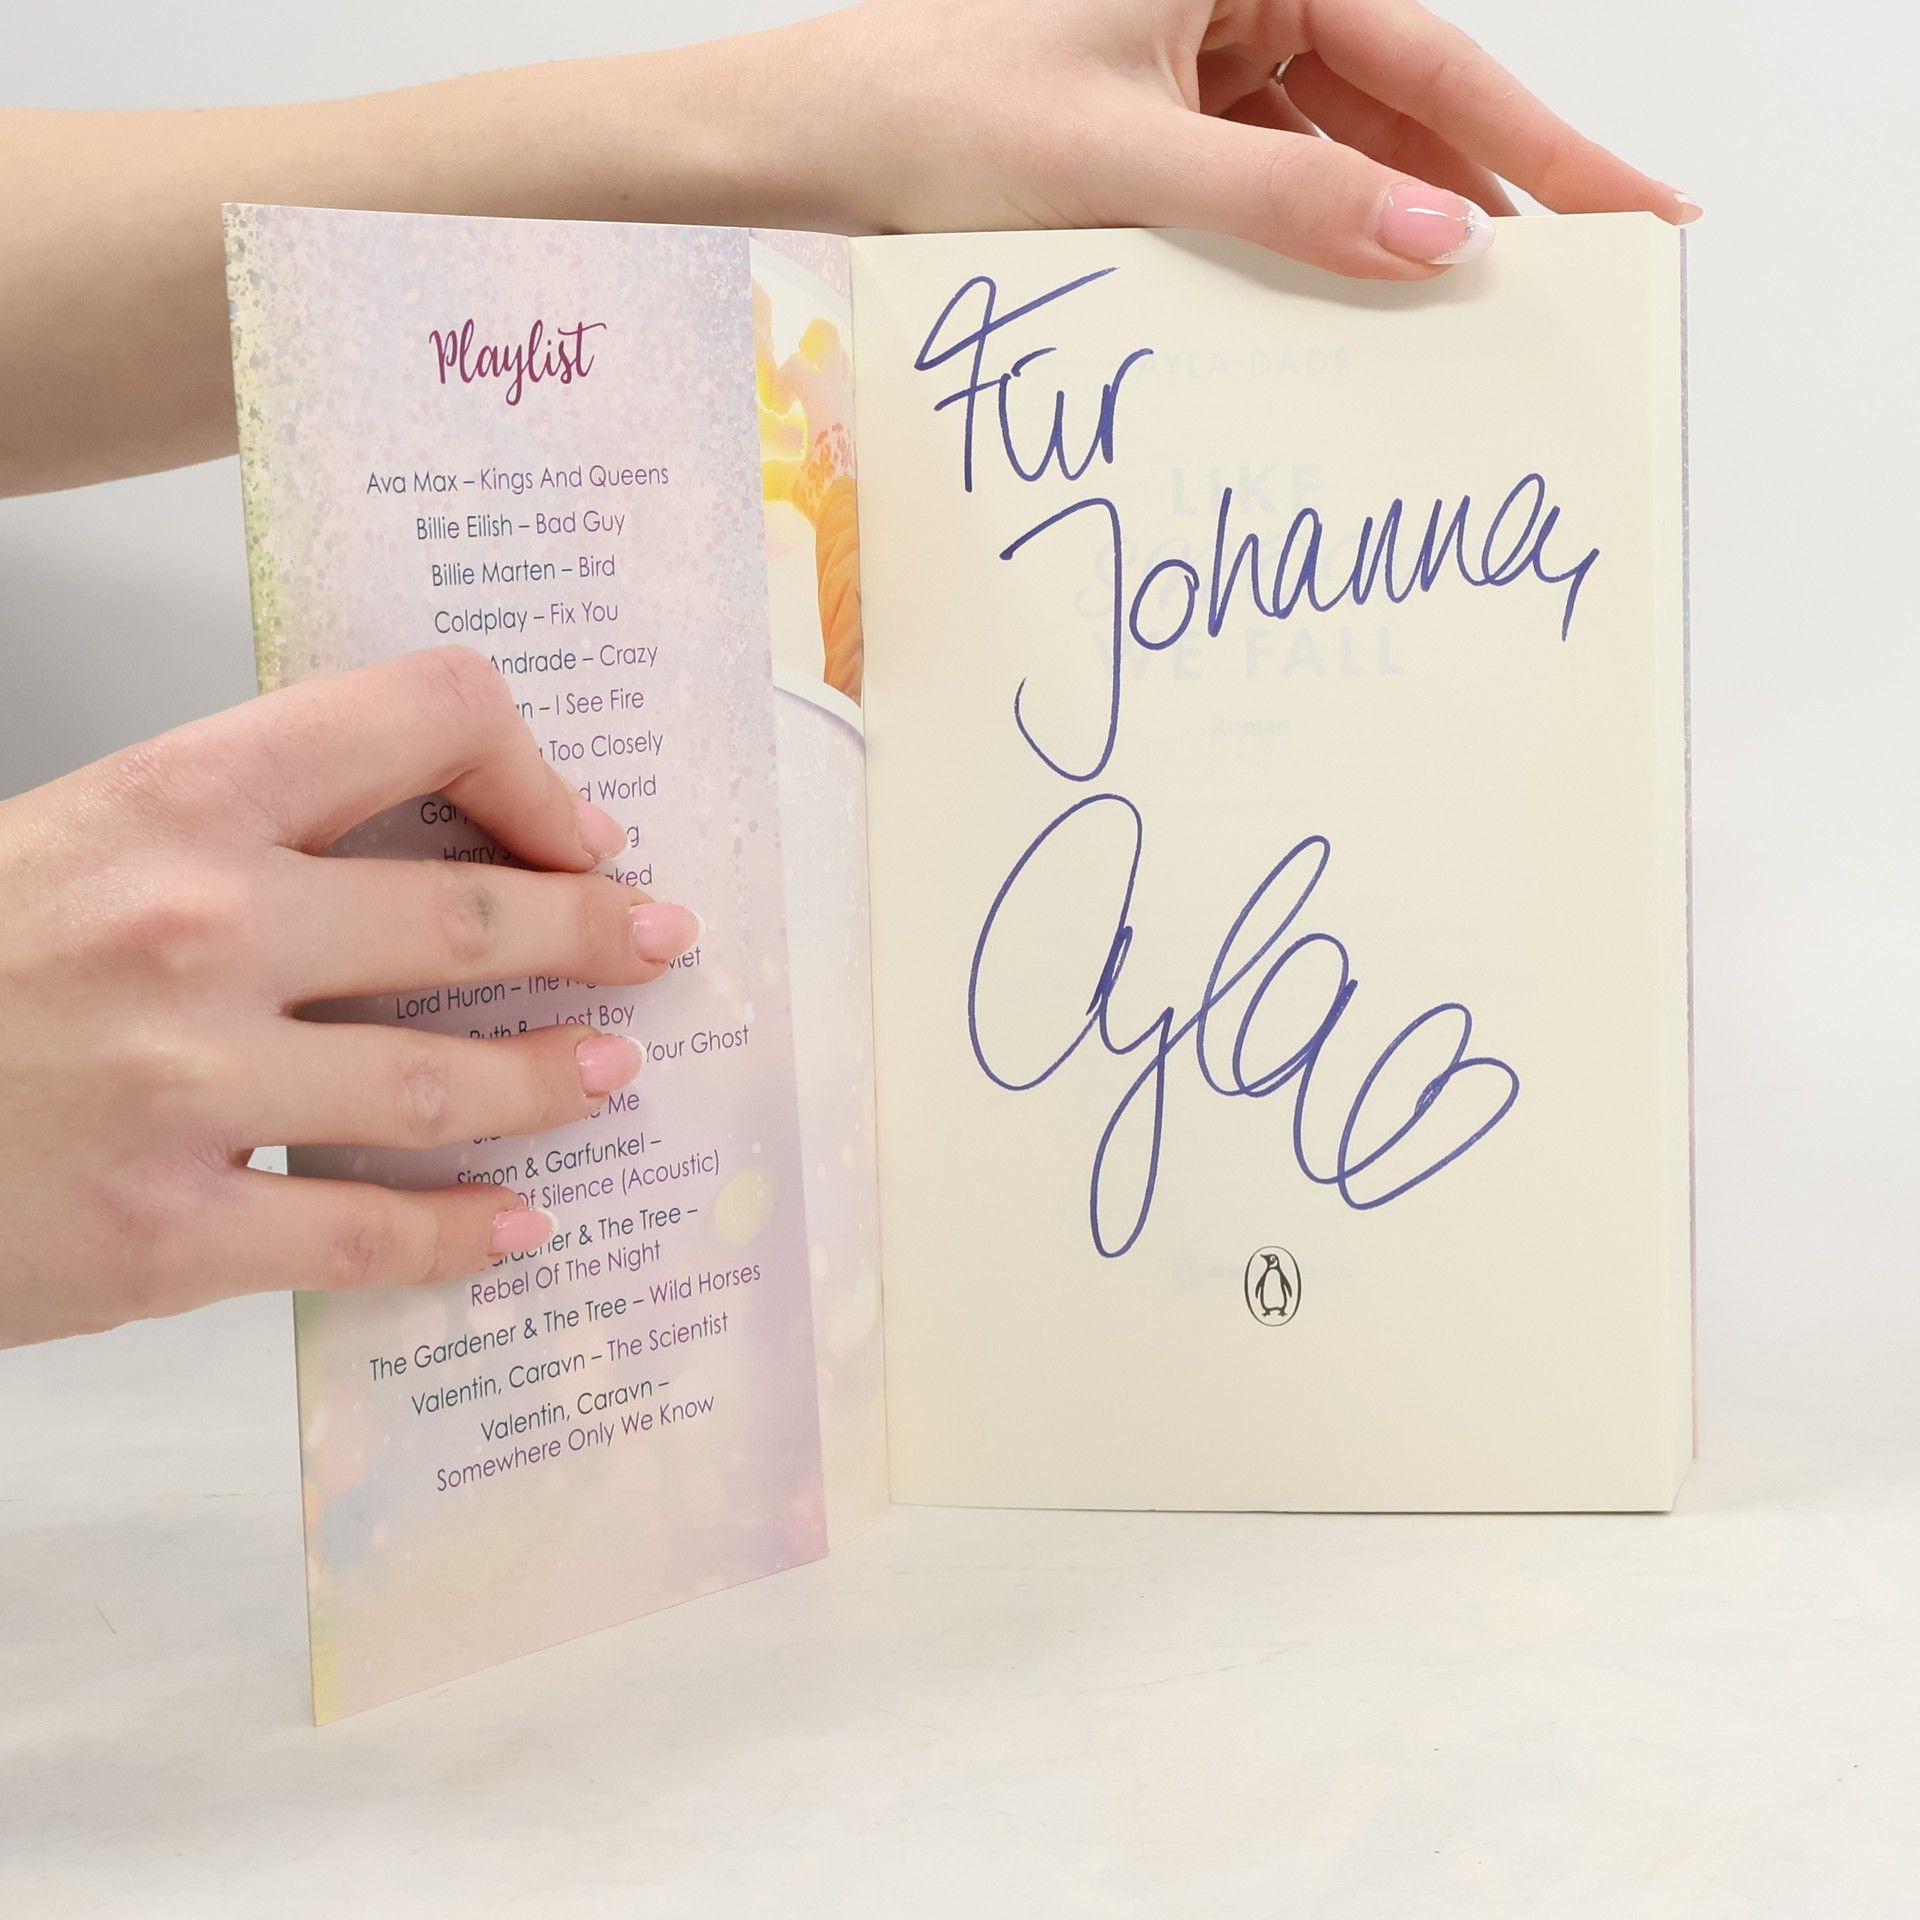 Playlist
Ava Max – Kings And Queens
Billie Eilish – Bad Guy
Billie Marten – Bird
Coldplay – Fix You
Andrade – Crazy
– I See Fire
Too Closely
World
Harry
Lord Huron – The
Lost Boy
Your Ghost
Me
Simon & Garfunkel –
Of Silence (Acoustic)
& The Tree –
Rebel Of The Night
The Gardener & The Tree – Wild Horses
Valentin, Caravn – The Scientist
Valentin, Caravn –
Somewhere Only We Know
Für
Johanna,
Ayla
AYLA DADE
LIKE
SNOW
WE FALL
Roman